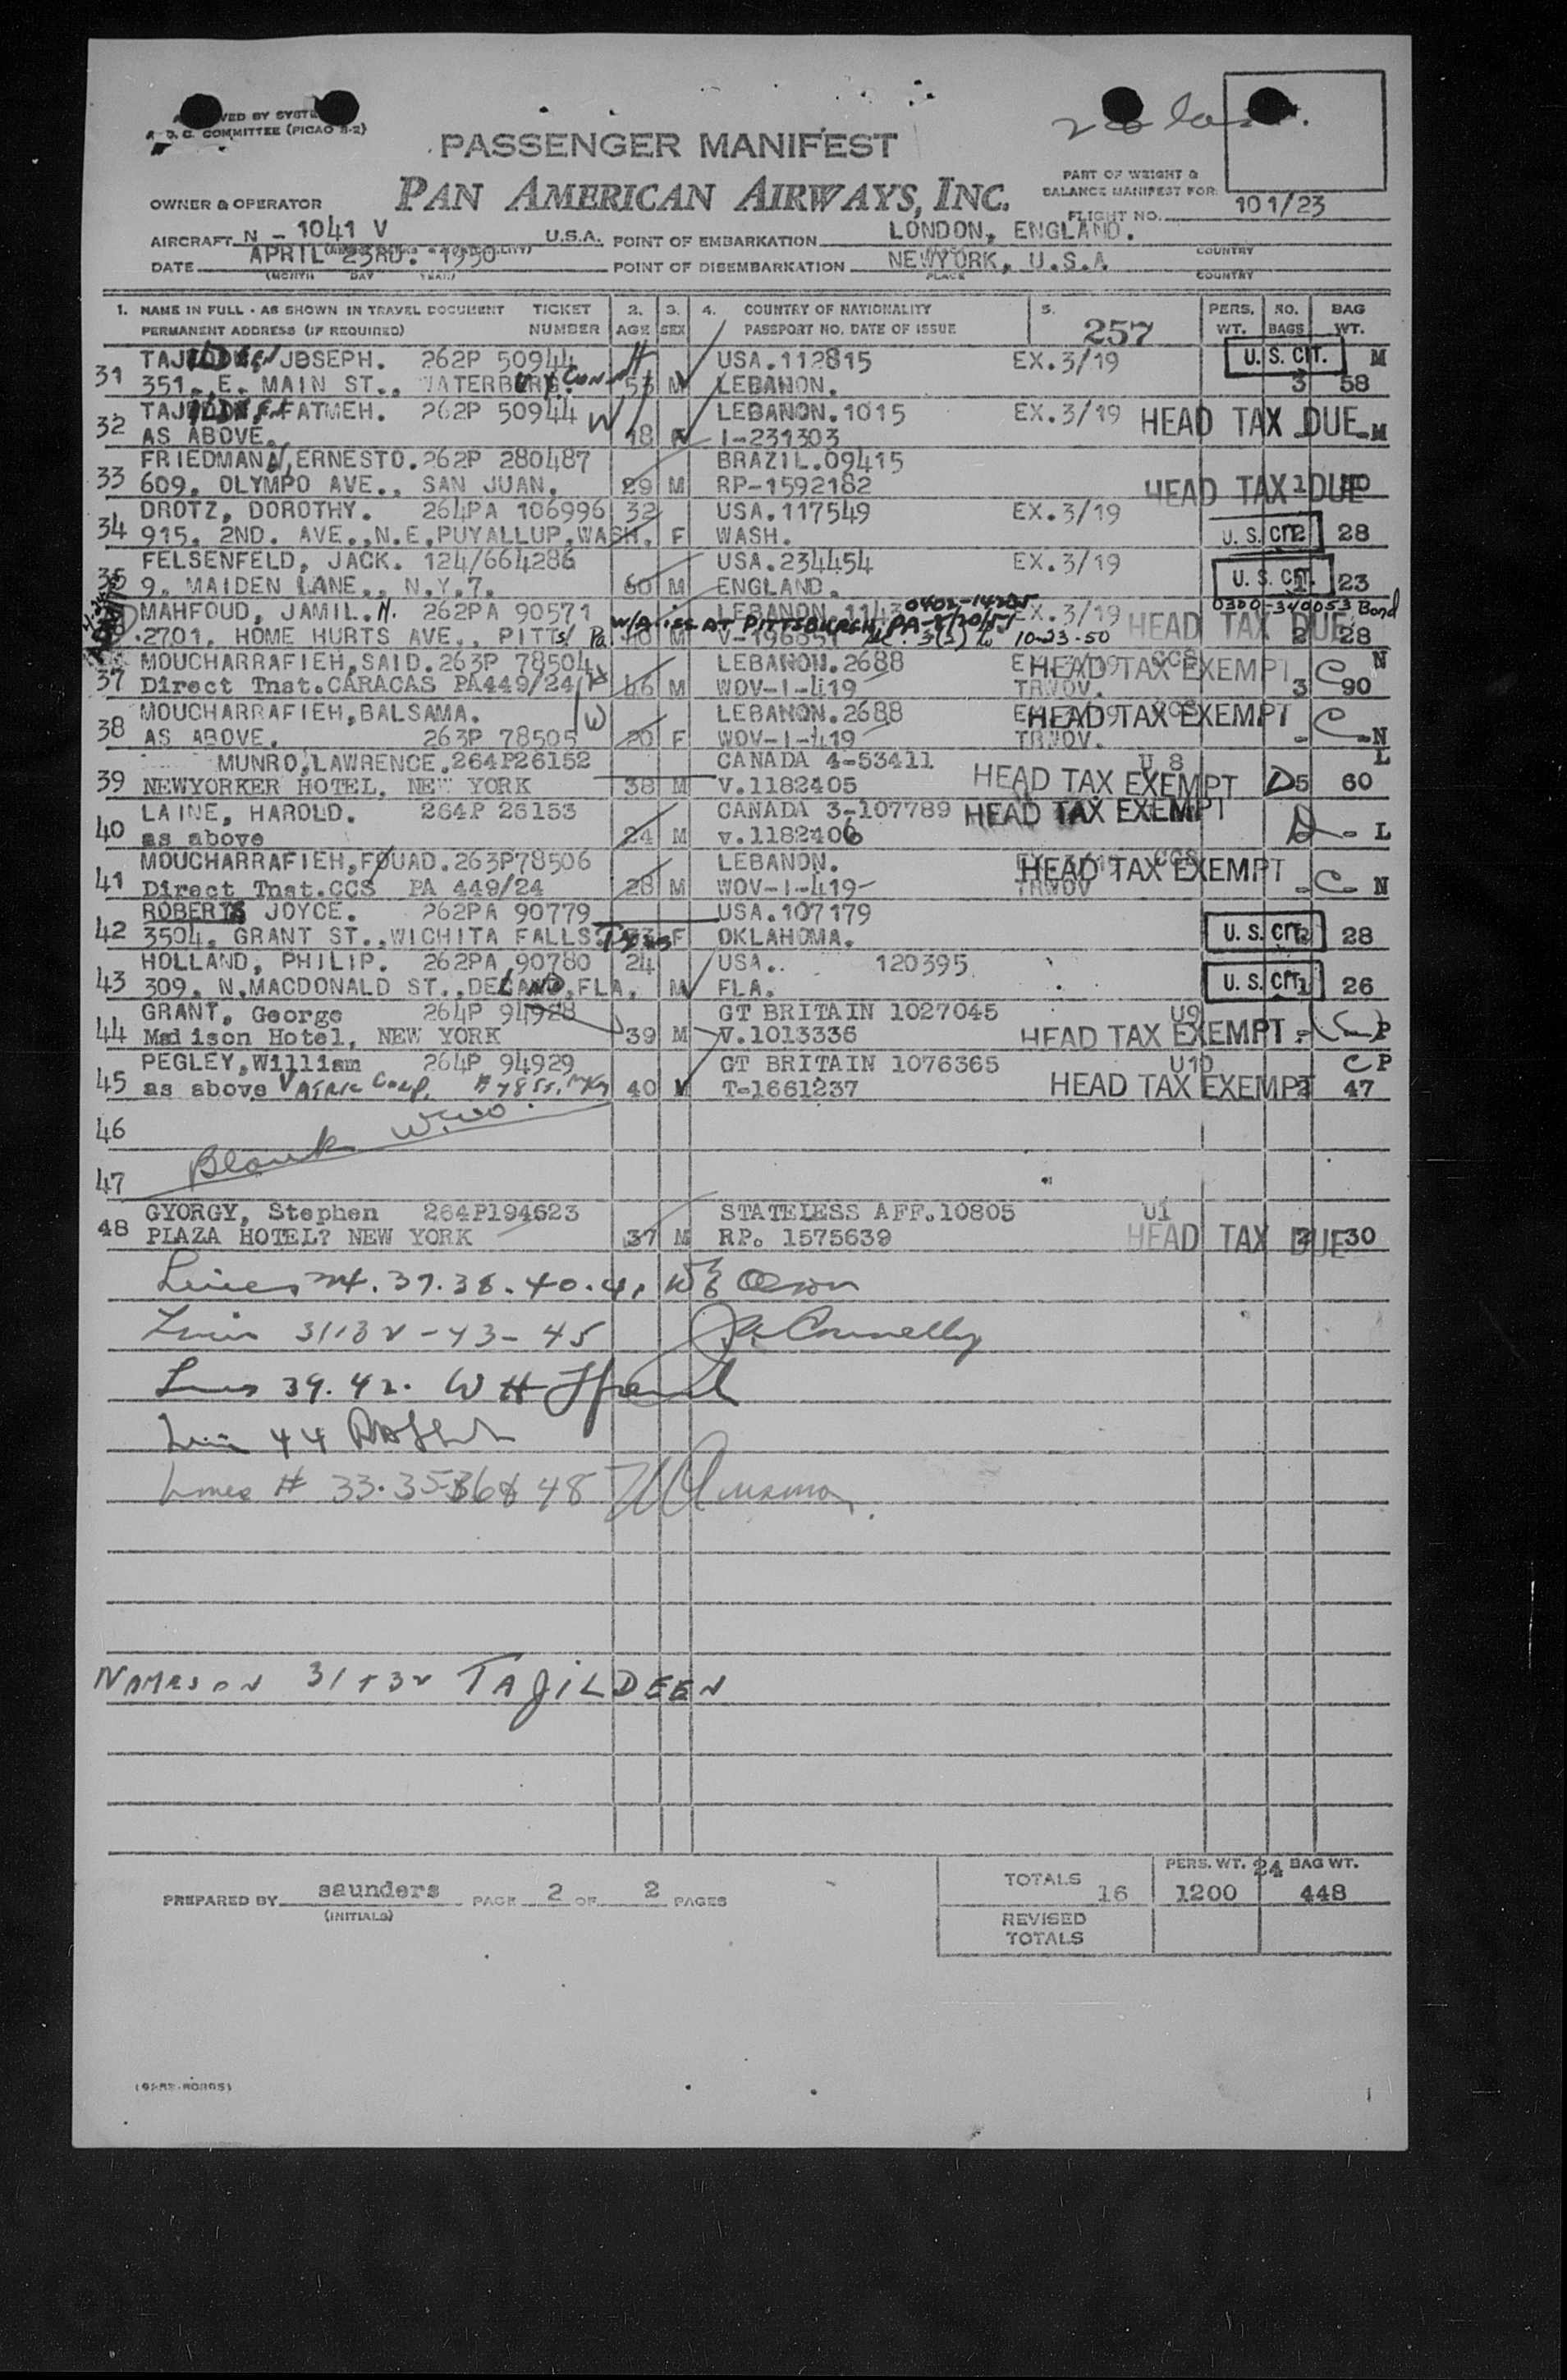 COMMITTEE (PICAO S-2)
PASSENGER MANIFEST
PAN AMERICAN AIRWAYS, INC.
PART OF WEIGHT &
BALANCE MANIFEST FOR:
OWNER & OPERATOR
FLIGHT NO. 101/23
AIRCRAFT N - 1041 V U.S.A. POINT OF EMBARKATION LONDON, ENGLAND. COUNTRY
DATE APRIL 23RD. 1950 POINT OF DISEMBARKATION NEWYORK, U.S.A
(MONTH DAY YEAR) PLACE COUNTRY
1. NAME IN FULL - AS SHOWN IN TRAVEL DOCUMENT TICKET 2. 3. 4. COUNTRY OF NATIONALITY 5. PERS. NO. BAG
PERMANENT ADDRESS (IF REQUIRED) NUMBER AGE SEX PASSPORT NO. DATE OF ISSUE 257 WT. BAGS WT.
JOSEPH. 262P 50944 USA.112815 EX.3/19 U.S. CIT. M
31 351. E. MAIN ST., WATERBURY. Conn 53 M LEBANON. 3 58
FATMEH. 262P 50944 W LEBANON.1015 EX.3/19 HEAD TAX DUE
32 AS ABOVE. 18 F I-231303 - -M
FRIEDMANN, ERNESTO. 262P 280487 BRAZIL.09415
33 609. OLYMPO AVE., SAN JUAN. 29 M RP-1592182 HEAD TAX DUE 1
DROTZ, DOROTHY. 264PA 106996 32 USA.117549 EX.3/19
34 915. 2ND. AVE.,N.E,PUYALLUP,WASH. F WASH. U.S. CIT. 2 28
FELSENFELD, JACK. 124/664286 USA.234454 EX.3/19
35 9. MAIDEN LANE., N.Y.7. 60 M ENGLAND. U.S. CIT. 1 23
MAHFOUD, JAMIL. H. 262PA 90571 LEBANON. 0402-14205 EX.3/19 0300-340053 Bond
2701. HOME HURTS AVE., PITTS Pa AT PITTSBURGH, PA 10-23-50 HEAD TAX DUE 2 28
MOUCHARRAFIEH,SAID. 263P 78504 LEBANON.2688 HEAD TAX EXEMPT C N
37 Direct Tnst.CARACAS PA449/24 H 46 M WOV-I-419 TRWOV. 3 90
MOUCHARRAFIEH,BALSAMA. W LEBANON.2688 HEAD TAX EXEMPT C
38 AS ABOVE. 263P 78505 20 F WOV-I-419 TRWOV. - -N
MUNRO,LAWRENCE.264P26152 CANADA 4-53411 U 8 L
39 NEWYORKER HOTEL, NEW YORK 38 M V.1182405 HEAD TAX EXEMPT D 5 60
LAINE, HAROLD. 264P 26153 CANADA 3-107789 HEAD TAX EXEMPT
40 as above 24 M v.1182406 D - L
MOUCHARRAFIEH,FOUAD.263P78506 LEBANON. CCS HEAD TAX EXEMPT
41 Direct Tnst.CCS PA 449/24 28 M WOV-I-419 TRWOV - C N
ROBERTS JOYCE. 262PA 90779 USA.107179
42 3504. GRANT ST.,WICHITA FALLS. Texas F OKLAHOMA. U.S. CIT. 2 28
HOLLAND, PHILIP. 262PA 90780 24 USA. 120395
43 309. N.MACDONALD ST.,DELAND,FLA. M FLA. U.S. CIT. 1 26
GRANT, George 264P 94928 GT BRITAIN 1027045 U9
44 Madison Hotel, NEW YORK 39 M V.1013336 HEAD TAX EXEMPT - P
PEGLEY,William 264P 94929 GT BRITAIN 1076365 U10 C P
45 as above 40 T-1661237 HEAD TAX EXEMPT 47
46
47 Blank
GYORGY, Stephen 264P194623 STATELESS AFF.10805 U1
48 PLAZA HOTEL? NEW YORK 37 M RP. 1575639 HEAD TAX DUE 30
Lines 34. 37. 38. 40. 41 Olson
Lines 31.32 - 43 - 45 Connelly
Lines 39. 42. W H
Line 44
Lines # 33. 35 36 & 48
NAMES ON 31 + 32 TAJILDEEN
PREPARED BY saunders PAGE 2 OF 2 PAGES
(INITIALS)
TOTALS 16 PERS. WT. 1200 24 BAG WT. 448
REVISED
TOTALS